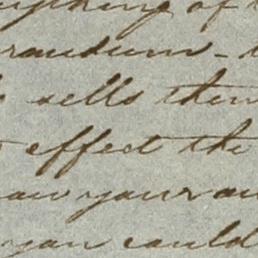 anything of
randum -
sells them
effect the
your
you could